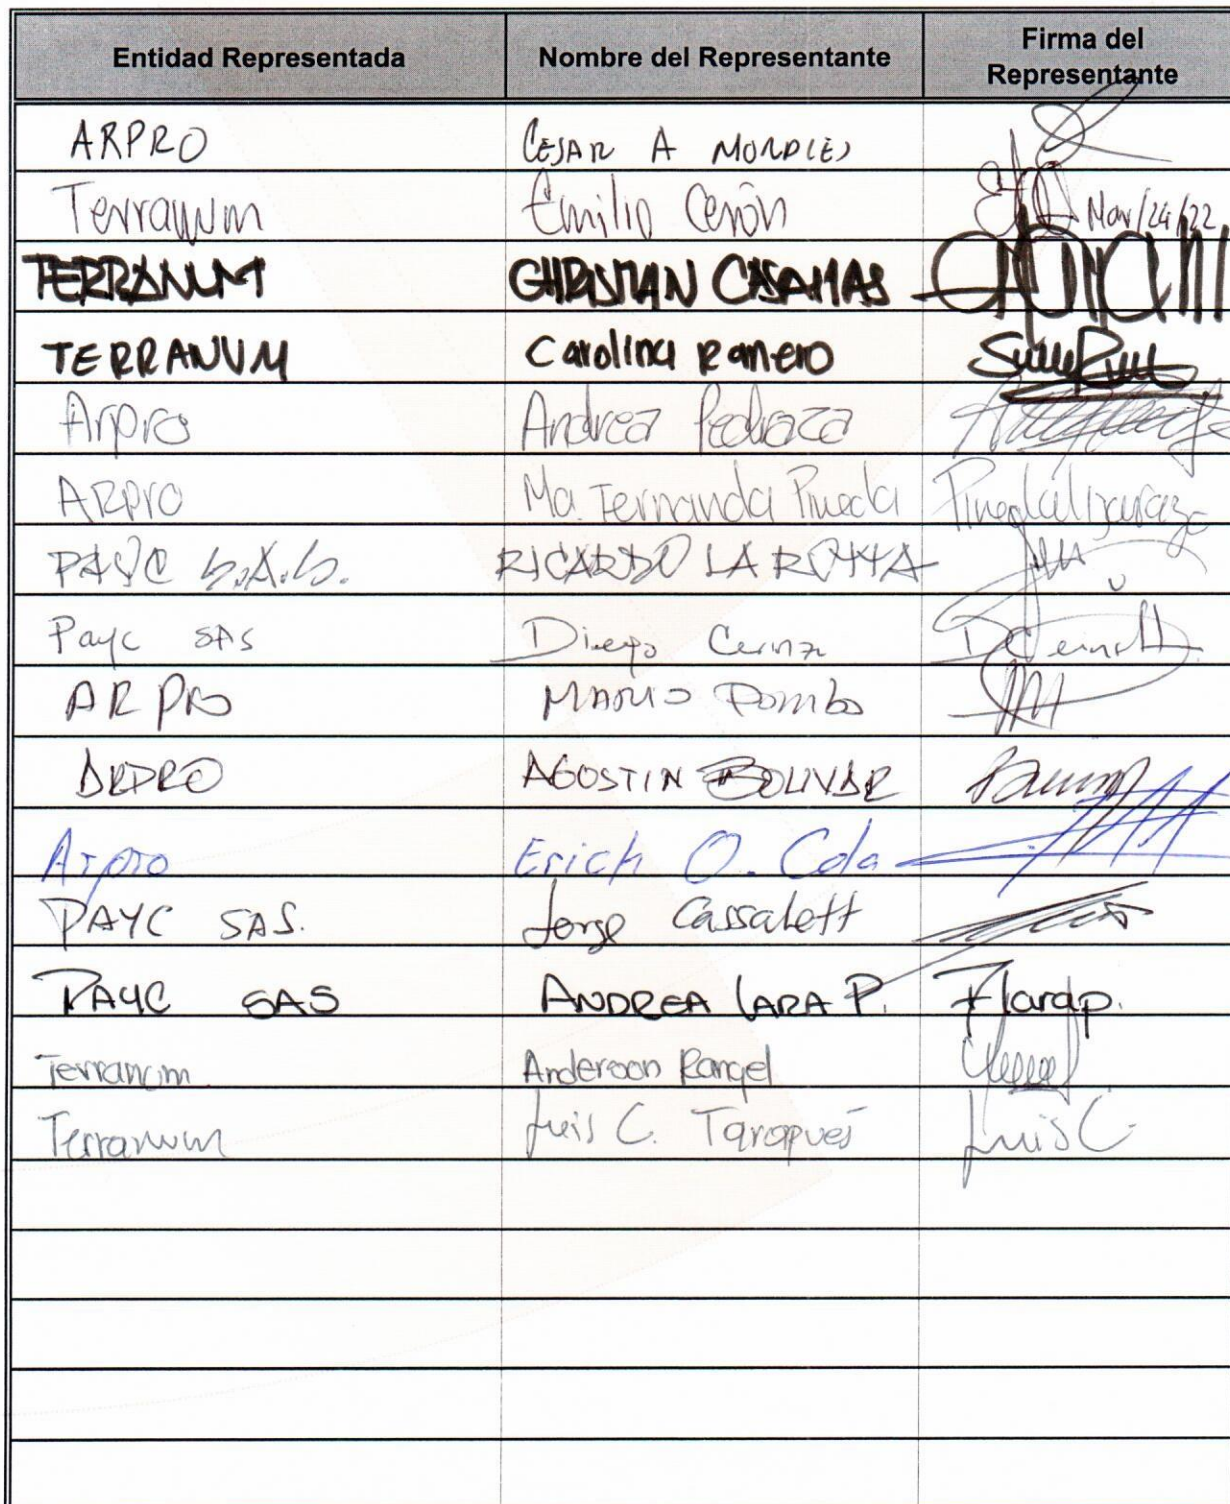 Entidad Representada Nombre del Representante Firma del Representante
ARPRO CESAR A MORALES
Terranum Emilio Cerón Mar/24/22
TERRANUM CHRISTIAN CASAMAS
TERRANUM Carolina Romero
Arpro Andrea Pedraza
ARPro Ma. Fernanda Pineda
PAYC S.A.S. RICARDO LA ROTTA
Payc SAS Diego
ARPRO MARIO Pombo
ARPRO AGOSTIN BOLIVAR
Arpro Erich O. Cola
PAYC SAS. Jorge Cassalett
PAYC SAS ANDREA LARA P. Flarap.
Terranum Anderson Rangel
Terranum Luis C. Tarapués Luis C